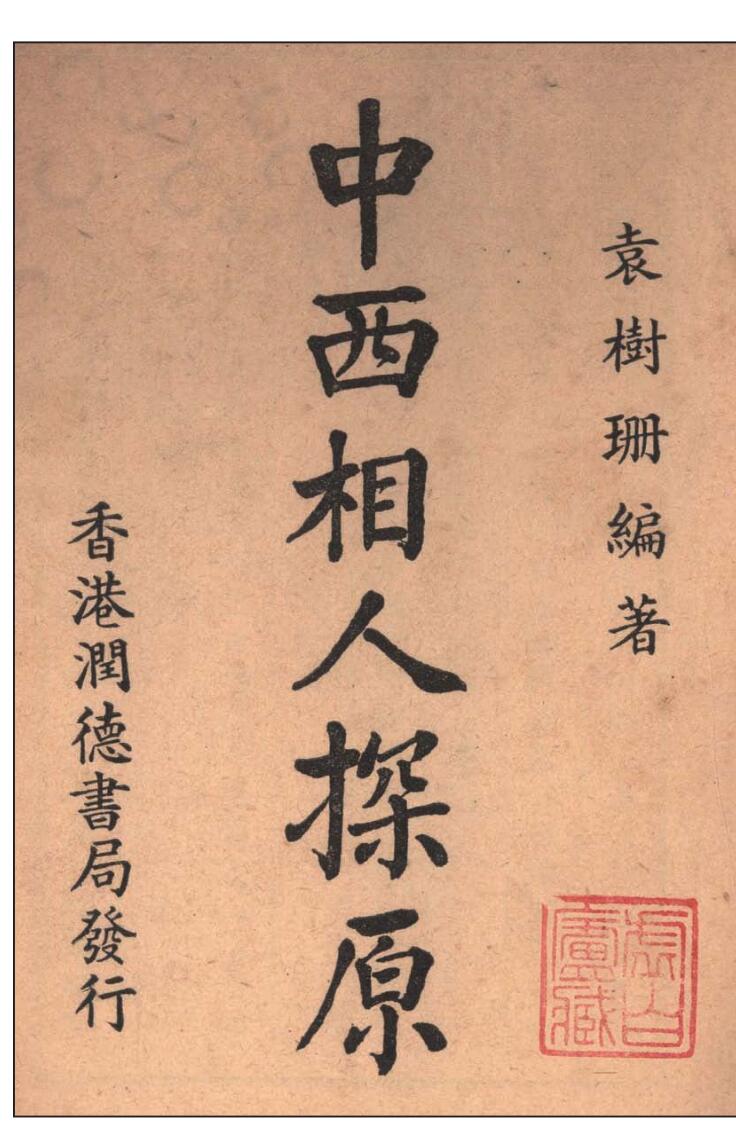 袁樹珊編著
中西相人探原
香港潤德書局發行
虛白廬藏